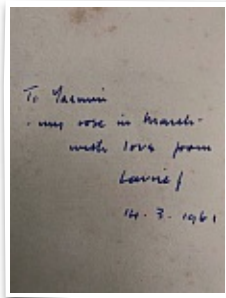 To Yasmin
- my rose in March -
with love from
14. 3. 1961